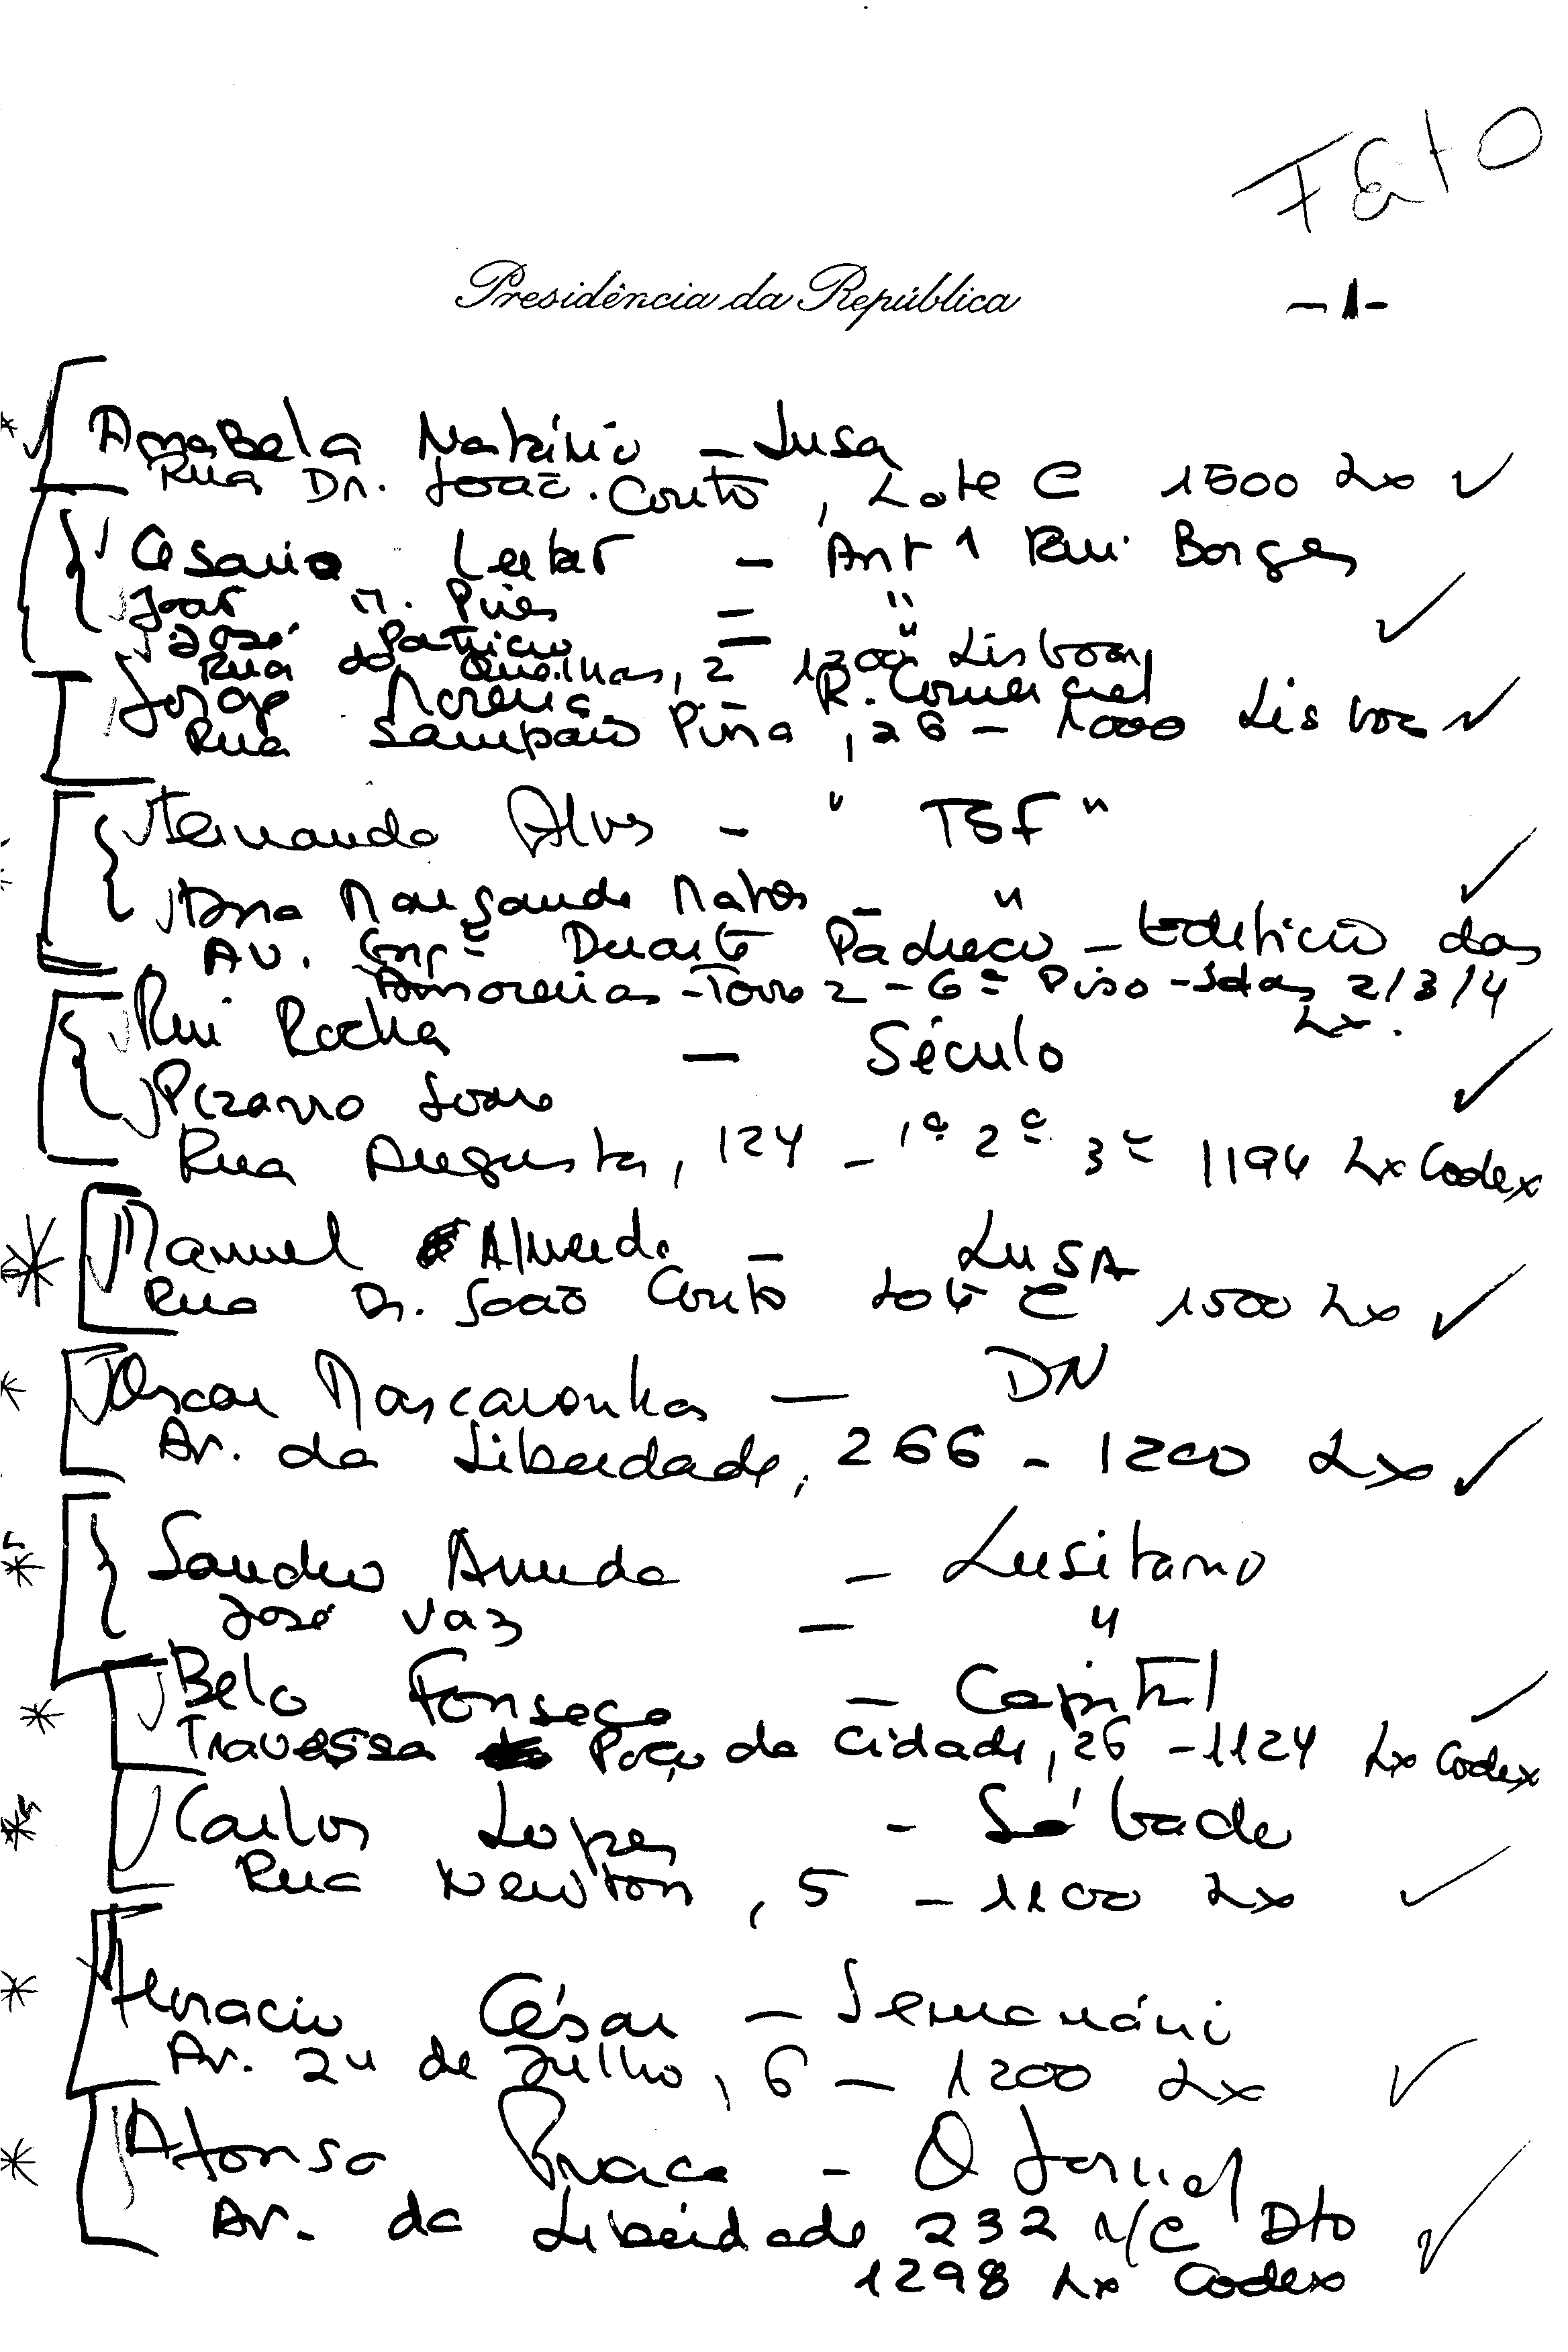 Feito
Presidência da República
-1-
Anabela Natário - Lusa
Rua Dr. João Couto, Lote C 1500 Lx
Cesario - Ant 1 Rui Borges
João M. Pires - "
José Patricio - "
Rua do Quelhas, 2 1200 Lisboa
Jorge Moreira R. Comercial
Rua Sampaio Pina, 26 - 1000 Lisboa
Fernando Alves - "TSF"
Ana Margarida Matos - "
Av. Engº Duarte Pacheco - Edificio das
Amoreiras - Torre 2 - 6º Piso - Salas 2/3/4
Lx.
Rui Rocha - Século
Pizarro
Rua Augusta, 124 - 1º 2º 3º 1194 Lx Codex
Manuel Almeida - LUSA
Rua Dr. João Couto Lote C 1500 Lx
Oscar Mascarenhas - DN
Av. da Liberdade, 266 - 1200 Lx
Sandro Arruda - Lusitano
José Vaz - "
Belo Fonseca - Capital
Travessa Poço da Cidade, 26 - 1124 Lx Codex
Carlos Lopes - Sábado
Rua Newton, 5 - 1100 Lx
Horacio César - Semanário
Av. 24 de Julho, 6 - 1200 Lx
Afonso Praça - O Jornal
Av. da Liberdade 232 r/c Dto
1298 Lx Codex